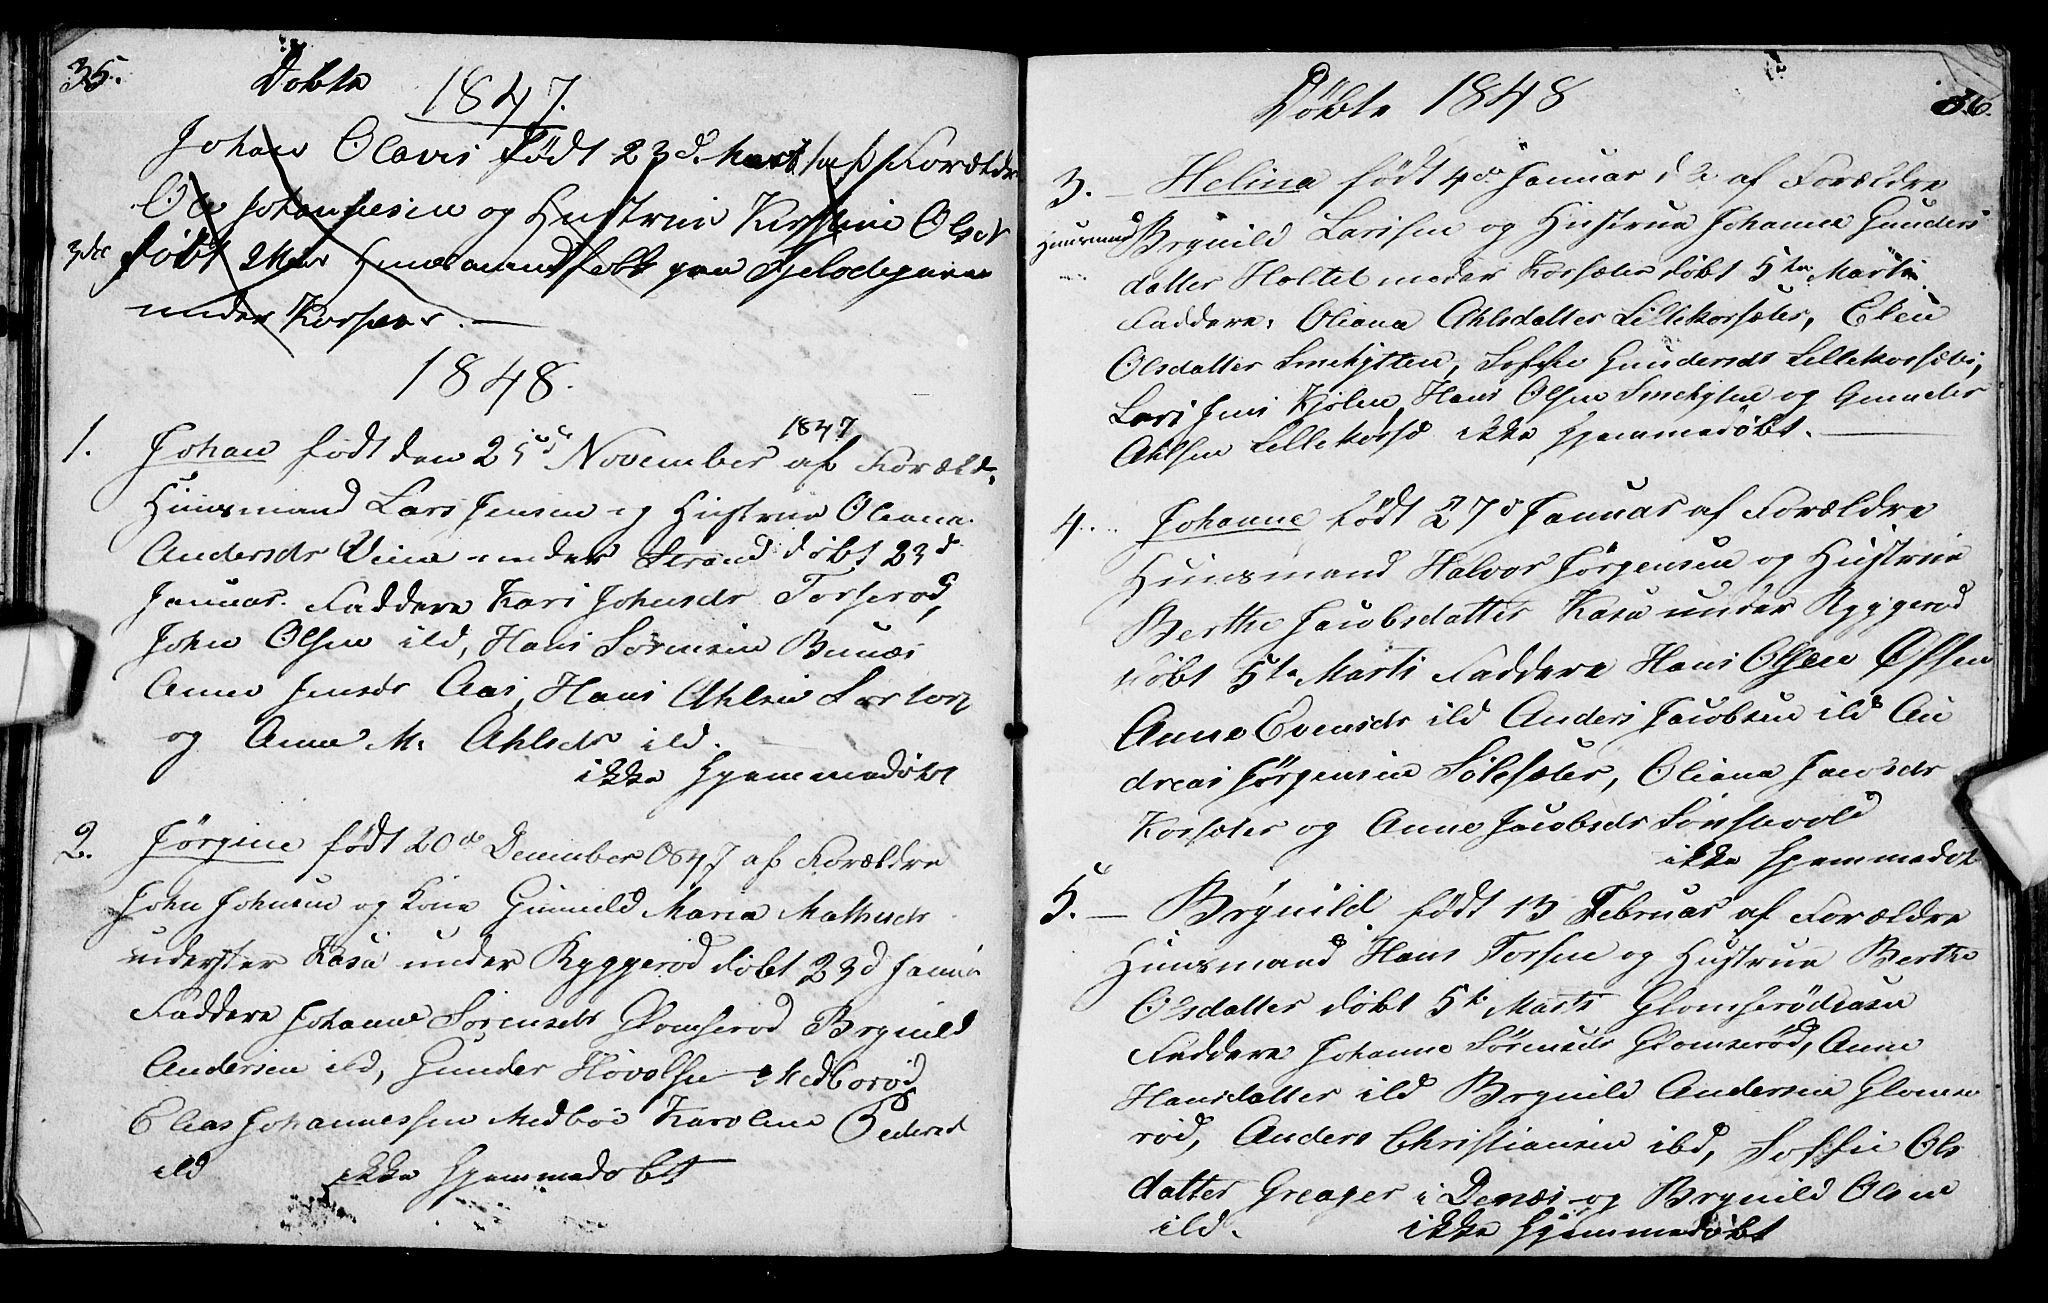 35.
Døbte
1847.
Johan Olavis født 23d. Marts af Forældre
Ole Johannesen og Hustrue Kirstine Olsdt
3die født Huusmandsfolk paa
under Korsæter.
1848.
1. Johan født den 25de November 1847 af Foræld.
Huusmand Lars Jensen og Hustrue Oleana
Andersdr Viin under Strand døbt 23d
Januar. Faddere Kari Johnsdr Torserød,
John Olsen ibd, Hans Sørensen Bunæs
Anne Jensdr Aas, Hans Ahlsen Sartorp
og Anne M. Ahlsdr ibd.
ikke hjemmedøbt
2. Jørgine født 20de December 1847 af Forældre
John Johnsen og Kone Gunnild Maria Mathisdr
Kasa under Ryggerød døbt 23d Januar
Faddere Johanne Sørensdr Glomserød Brynild
Andersen ibd, Gunder Hovolsen Medborød
Elias Johannessen Medboe Karoline Pedersd
ibd ikke hjemmedøbt
Døbte 1848
36.
3. Helina født 4de Januar d. A. af Forældre
Huusmand Brynild Larssen og Hustrue Johanne Gunders
datter Holtet under Korsæter døbt 5te Marts.
Faddere, Oliana Ahlsdatter Lillekorsæter, Elen
Olsdatter Smehytten, Soffie Gundersdr Lillekorsæter,
Lars Jens Kjølen, Hans Olsen Smehyten og Gunder
Ahlsen Lillekorsæ ikke hjemmedøbt.
4. Johanne født 27d Januar af Forældre
Huusmand Halvor Jørgensen og Hustrue
Berthe Jacobsdatter Kasa under Ryggerød
døbt 5te Marts Faddere Hans Olsen
Anne Evensdr ibd Anders Jacobsen ibd An
dreas Jørgensen Sølesæter, Oliana Jacobsdr
Korsæter og Anne Jacobsdr
ikke hjemmedøbt
5. Brynild født 13 Februar af Forældre
Huusmand Hans Torsen og Hustrue Berthe
Olsdatter døbt 5te Marts Glomserødeasen
Faddere Johanne Sørensdr Glomserød, Anne
Hansdatter ibd Brynild Andersen Glomse
rød, Anders Christiansen ibd, Soffie Ols
datter Greager i og Brynild Olsen
ibd. ikke hjemmedøbt